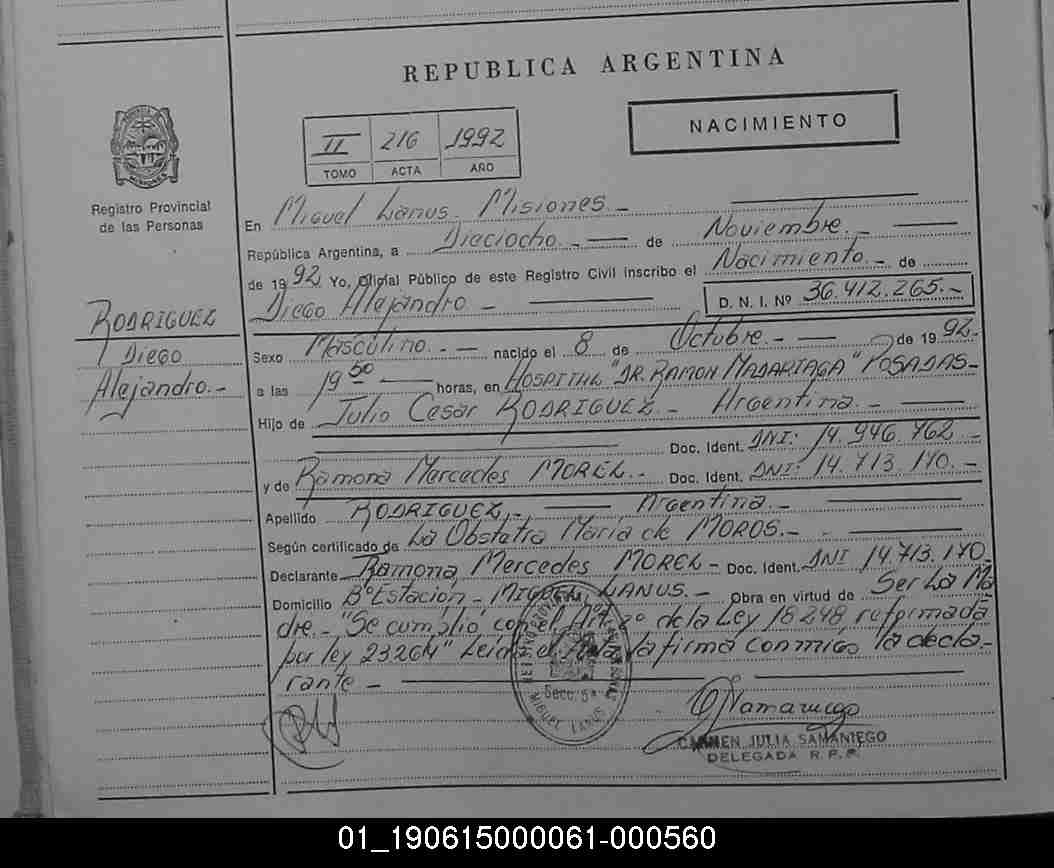 REPUBLICA ARGENTINA
NACIMIENTO
II 216 1992
TOMO ACTA AÑO
Registro Provincial
de las Personas
RODRIGUEZ
Diego
Alejandro.-
En Miguel Lanus. Misiones.-
República Argentina, a Dieciocho.- de Noviembre.-
de 1992 Yo, Oficial Público de este Registro Civil inscribo el Nacimiento.- de
Diego Alejandro.- D. N. I. Nº 36.412.265.-
Sexo Masculino.- nacido el 8 de Octubre.- de 1992.
a las 19 50 horas, en HOSPITAL "DR. RAMON MADARIAGA" POSADAS-
Hijo de Julio Cesar RODRIGUEZ.- Argentina.-
Doc. Ident. DNI: 14.946.762.-
y de Ramona Mercedes MOREL.- Doc. Ident. DNI: 14.713.170.-
Argentina.-
Apellido RODRIGUEZ.-
Según certificado de La Obstetra Maria de MOROS.-
Declarante Ramona Mercedes MOREL- Doc. Ident. DNI 14.713.170
Domicilio Bº Estacion- MIGUEL LANUS.- Obra en virtud de Ser La Ma
dre.- "Se cumplio con el Art 2º de la Ley 18248, reformada
por ley 23264" Leida el Acta la firma conmigo la decla-
rante-
Secc. 5ª
MIGUEL LANUS
CARMEN JULIA SAMANIEGO
DELEGADA R. P. P.
01_190615000061-000560